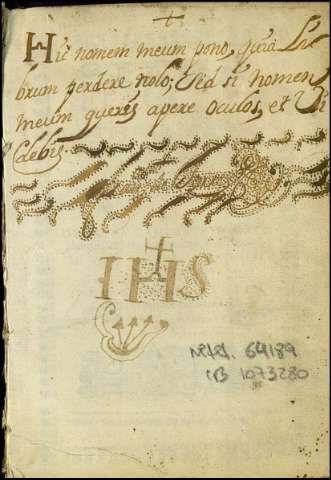 Hic nomem meum pono, quia Li
brum perdere nolo; Sed si nomen
meum queris apere oculos, et Vi
debis.
IHS
64189
1073280